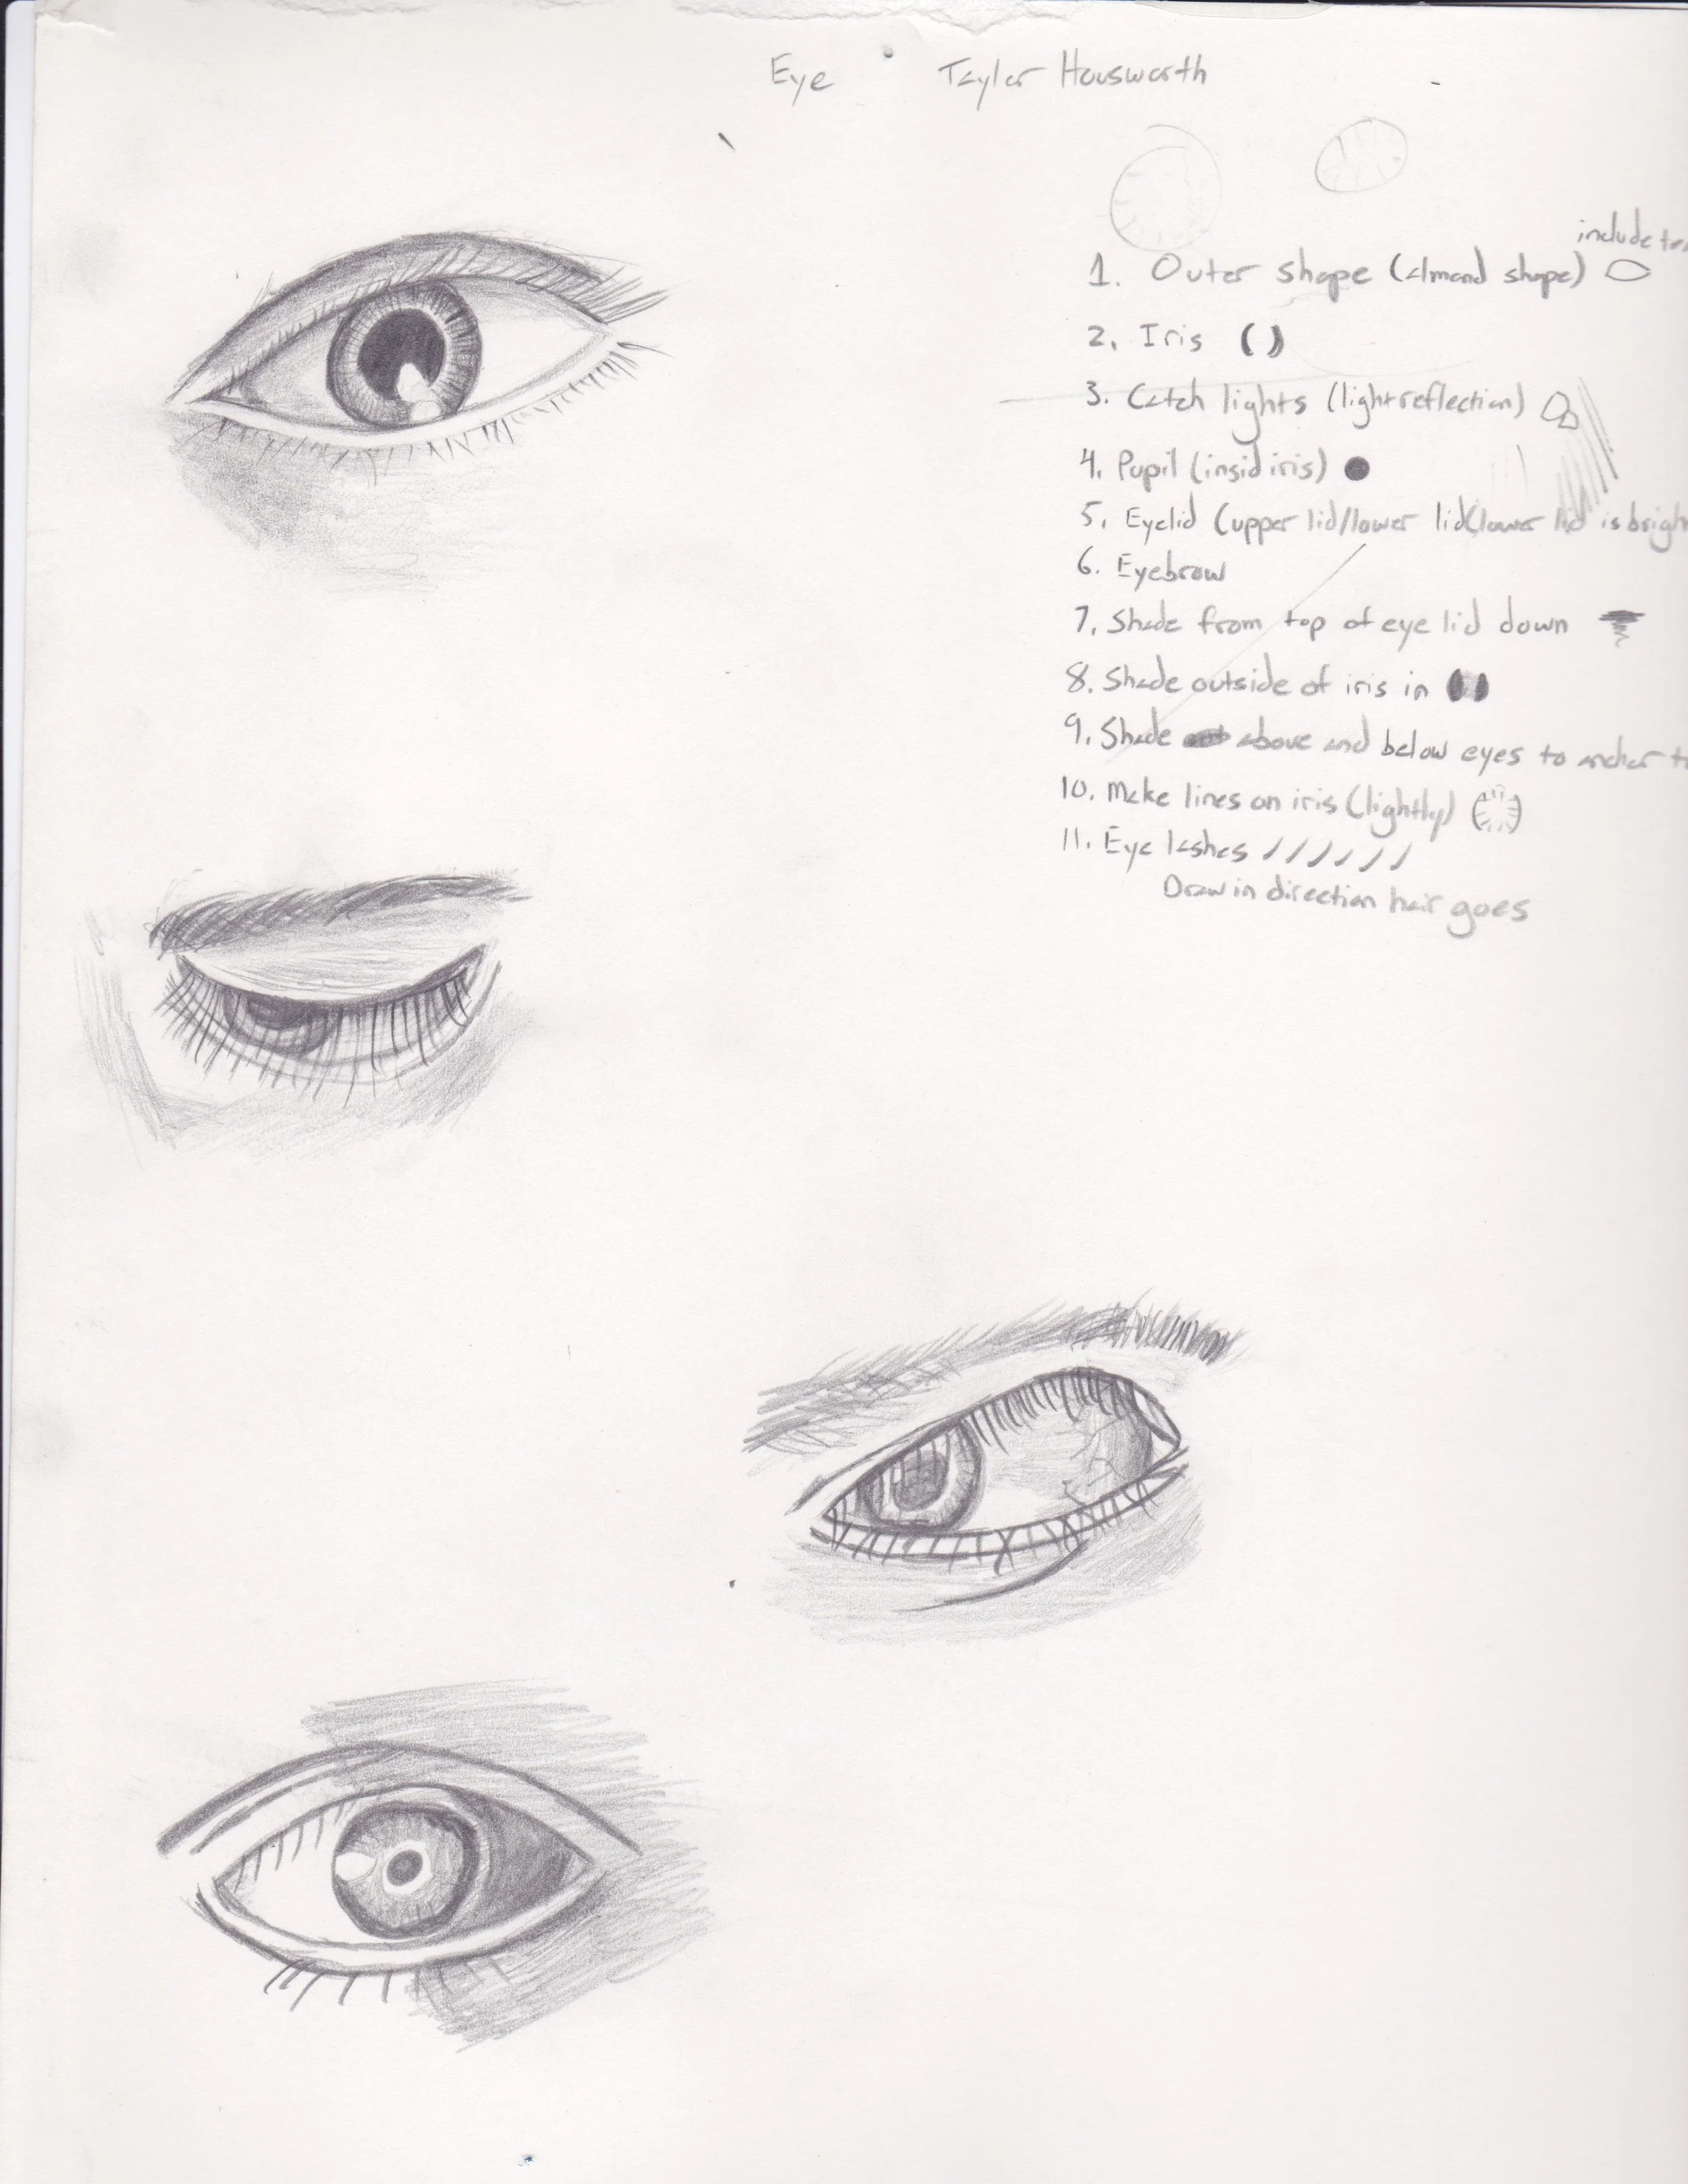 Eye Taylor Housworth
include
1. Outer shape (almond shape)
2. Iris
3. Catch lights (light reflection)
4. Pupil (insid iris)
5. Eyelid (upper lid/lower lid(lower lid is brigh
6. Eyebrow
7. Shade from top of eye lid down
8. Shade outside of iris in
9. Shade above and below eyes to anchor
10. Make lines on iris (lightly)
11. Eye lashes
Draw in direction hair goes